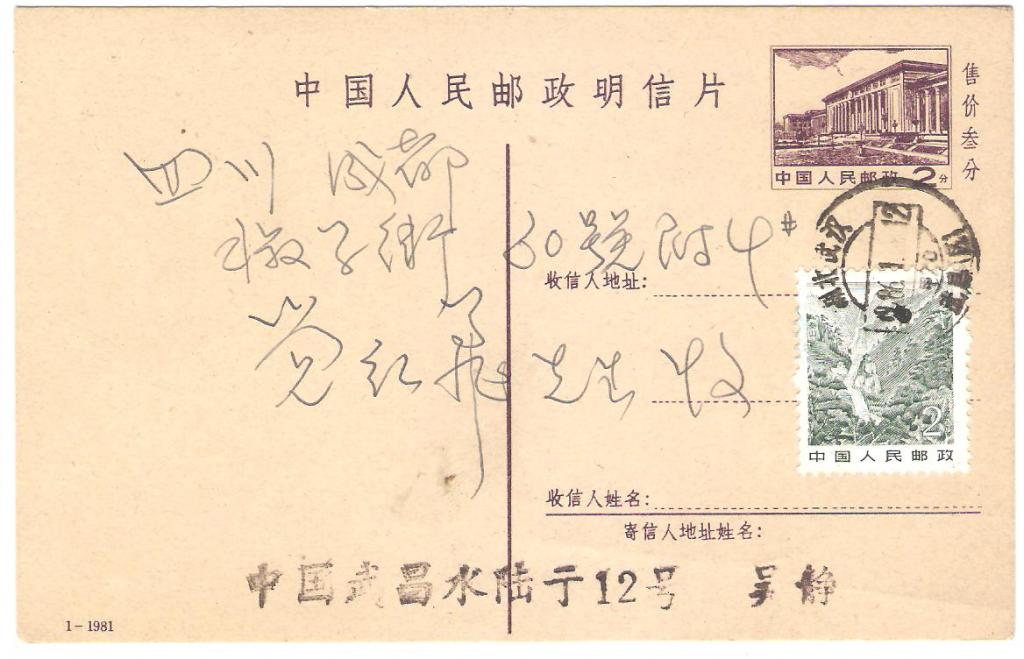 中国人民邮政明信片
售价叁分
中国人民邮政 2分
四川 成都
街 60號附4#
红 先生 收
湖北武汉
收信人地址:
2
中国人民邮政
收信人姓名:
寄信人地址姓名:
中国武昌水陆于12号 吴静
1-1981